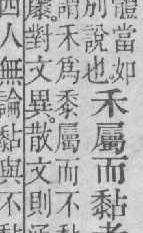 體當如
別說也。
禾屬而黏者
謂禾爲黍屬而不黏
對文異。散文則
人無論黏與不黏